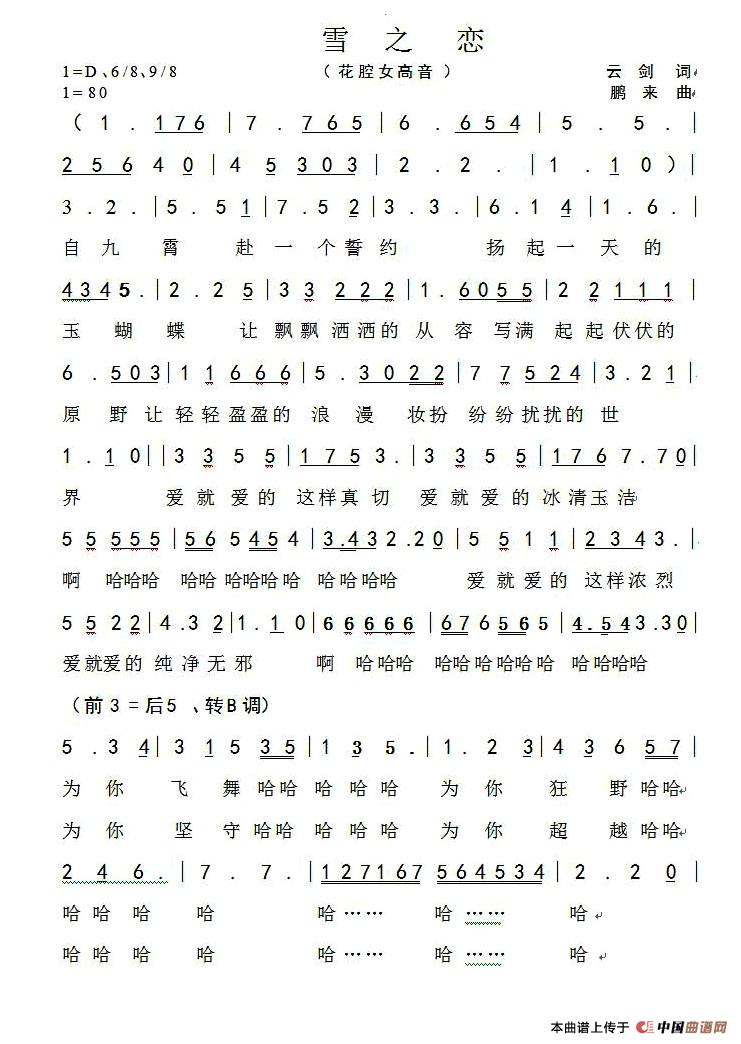 雪 之 恋
1=D、6/8、9/8 （花腔女高音） 云 剑 词
1=80 鹏 来 曲
（ 1 . 176 | 7 . 765 | 6 . 654 | 5 . 5 . |
25640 | 45 303 | 2 . 2 . | 1 . 10）|
3 . 2 . | 5 . 51 | 7 . 52 | 3 . 3 . | 6 . 14 | 1 . 6 . |
自 九 霄 赴 一 个 誓 约 扬 起 一 天 的
4345 . | 2 . 25 | 33 222 | 1 . 6055 | 22111 |
玉 蝴 蝶 让 飘飘 洒洒的 从 容 写满 起起伏伏的
6 . 503 | 11666 | 5 . 3022 | 77524 | 3 . 21 |
原 野 让 轻轻盈盈的 浪 漫 妆扮 纷纷扰扰的 世
1 . 10 | | 3355 | 1753 . | 3355 | 1767 . 70 |
界 爱就爱的 这样真切 爱就爱的 冰清玉洁
55555 | 565454 | 3.432.20 | 5511 | 2343 . |
啊 哈哈哈 哈哈哈哈哈哈 哈哈哈哈 爱就爱的 这样浓烈
5522 | 4 . 32 | 1 . 10 | 66666 | 676565 | 4.543.30 |
爱就爱的 纯净无邪 啊 哈哈哈 哈哈哈哈哈哈 哈哈哈哈
（前3=后5 、转B调）
5 . 34 | 31535 | 135 . | 1 . 23 | 43657 |
为 你 飞 舞 哈哈 哈 哈哈 为 你 狂 野 哈哈
为 你 坚 守 哈哈 哈 哈哈 为 你 超 越 哈哈
246 . | 7 . 7 . | 127167 564534 | 2 . 20 |
哈 哈 哈 哈 哈…… 哈…… 哈
哈 哈 哈 哈 哈…… 哈…… 哈
本曲谱上传于 中国曲谱网